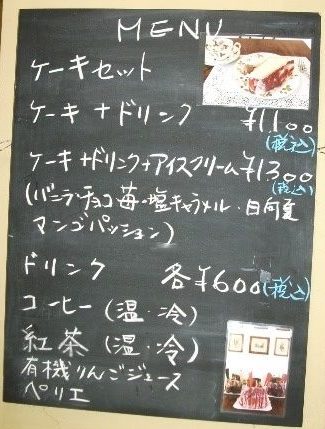 MENU
ケーキセット
ケーキ+ドリンク ¥1100
(税込)
ケーキ+ドリンク+アイスクリーム¥1300
(税込)
(バニラ・チョコ 苺・塩キャラメル・日向夏
マンゴパッション)
ドリンク 各¥600(税込)
コーヒー(温・冷)
紅茶(温・冷)
有機りんごジュース
ペリエ